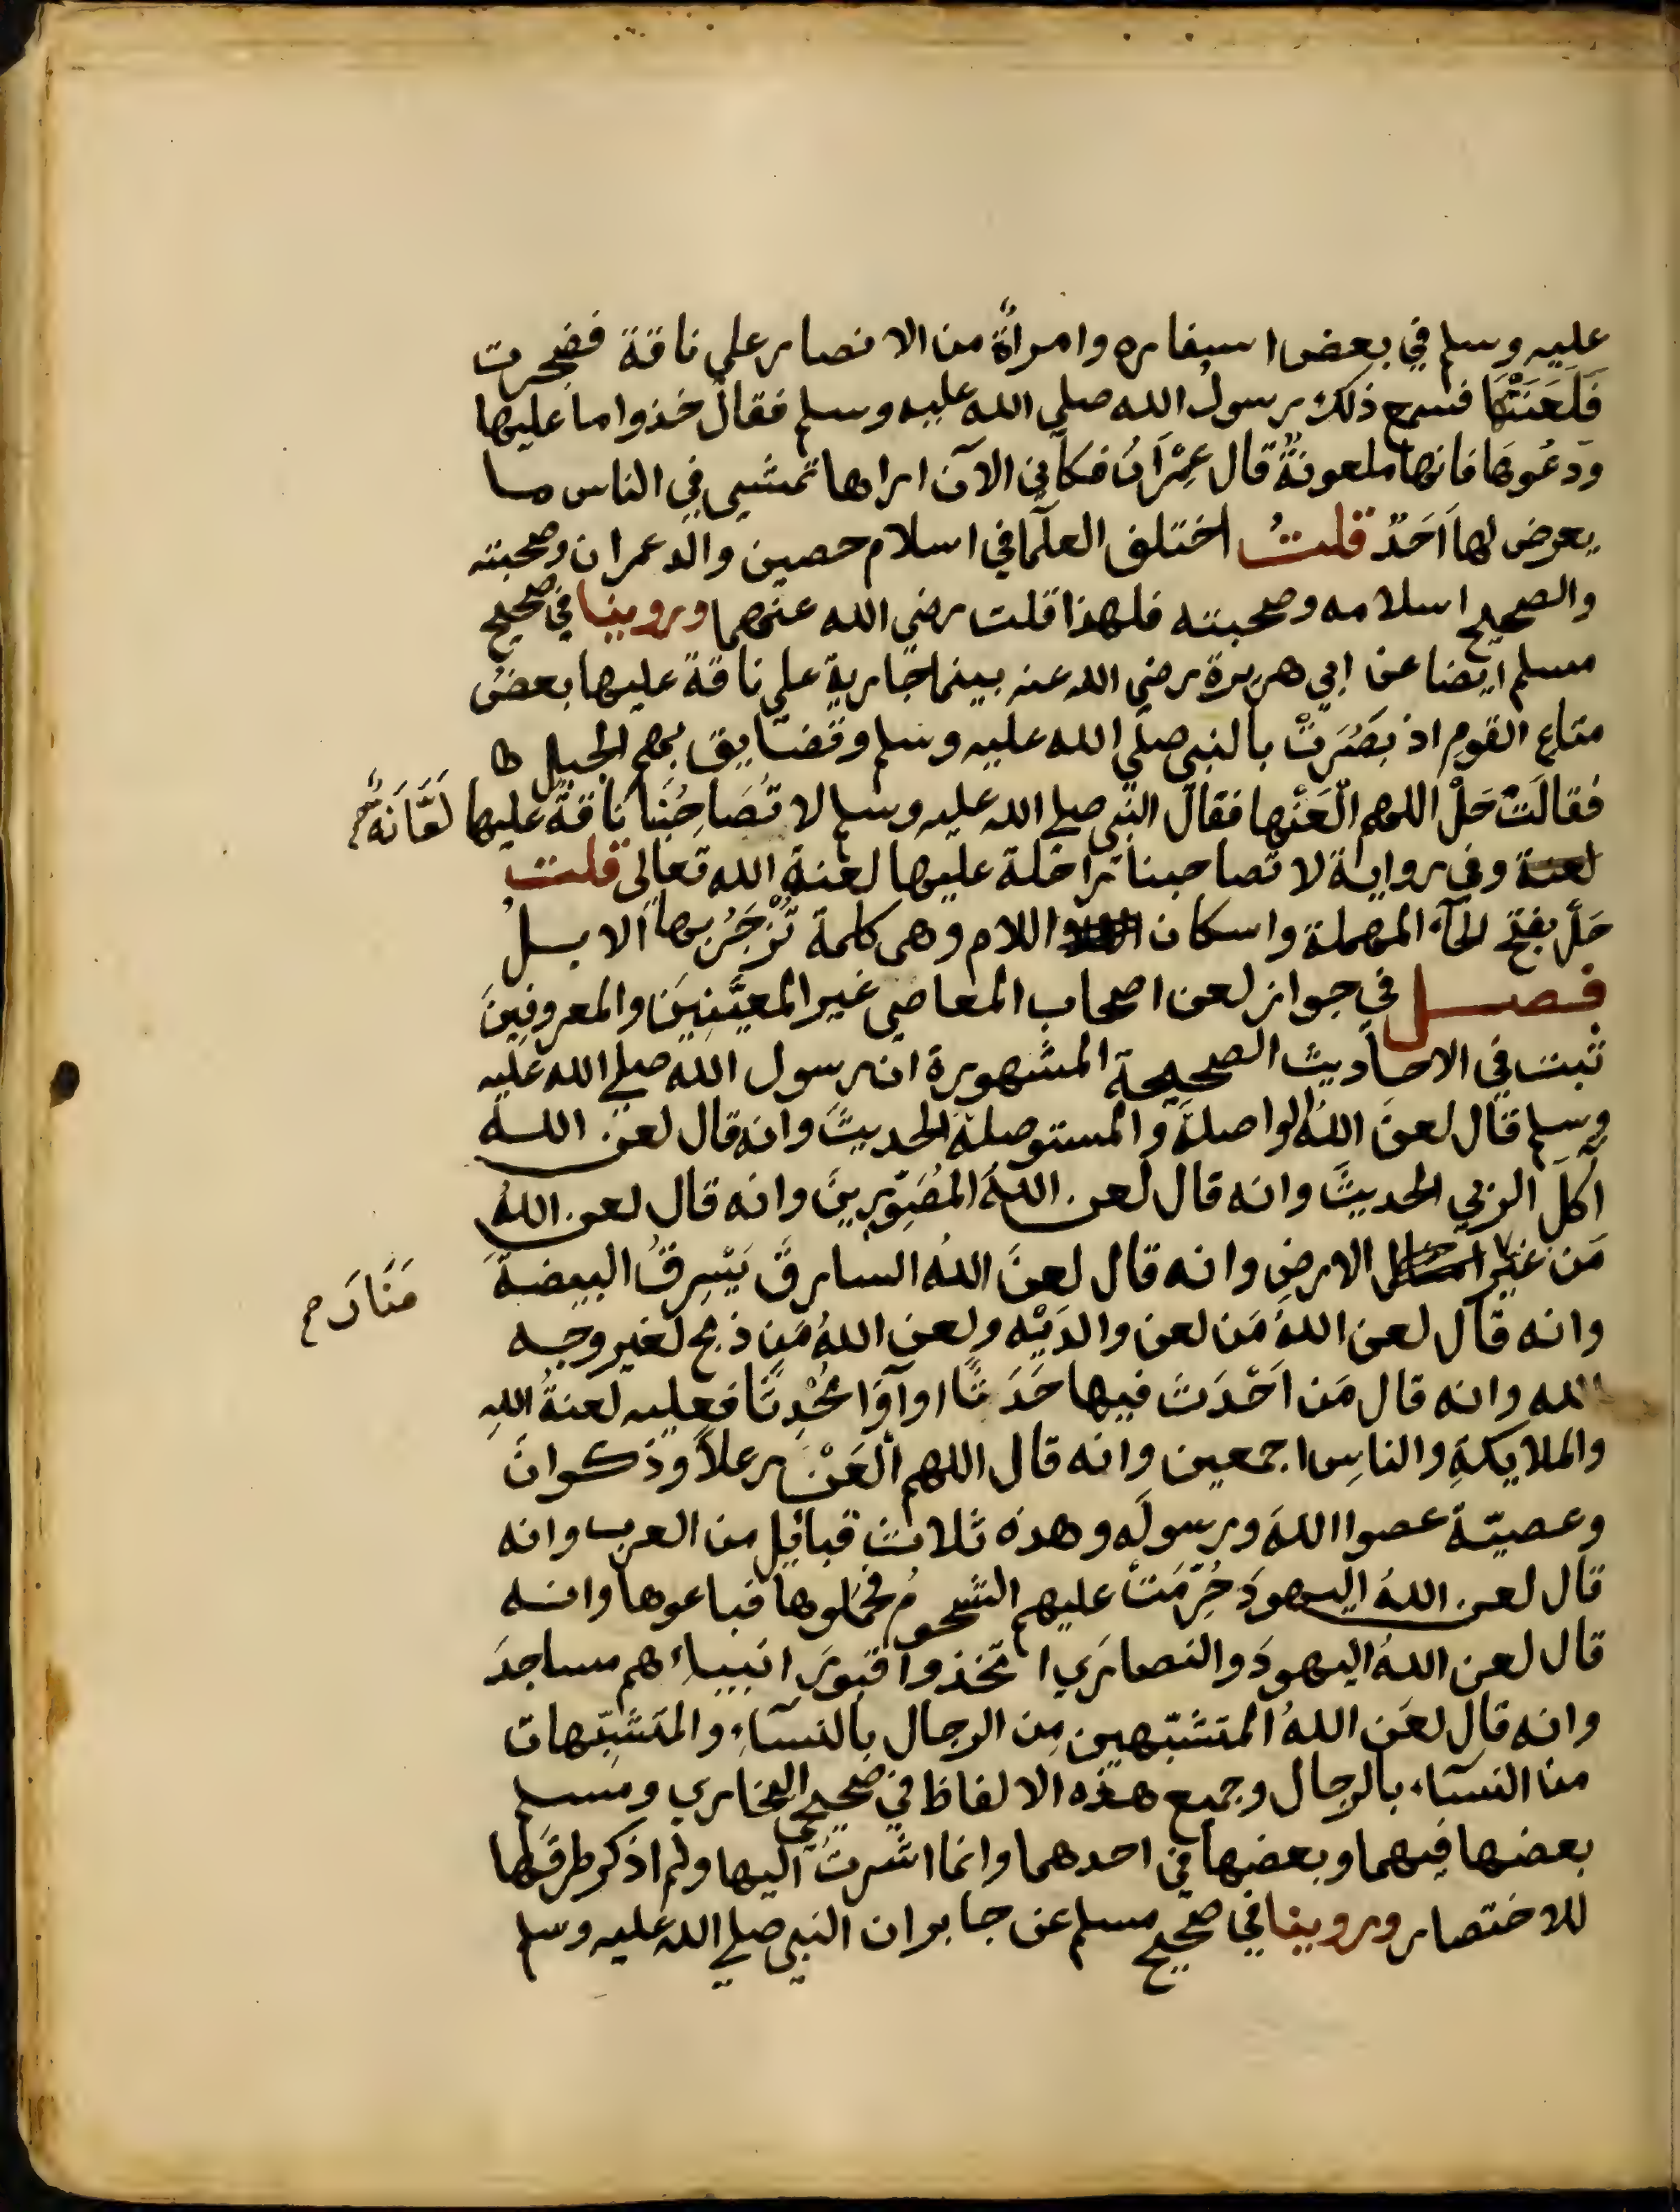 عليه وسلم في بعض اسفاره وامرأةٌ من الانصار علي ناقة فضجرت
فَلَعَنَتْهَا فسمع ذلك رسولُ الله صلي الله عليه وسلم فقال خذوا ما عليها
ودَعُوهَا فانها ملعونةٌ قال عِمْرَانُ فكأني الآن اراها تمشي في الناس ما
يعرض لها اَحَدٌ قلتُ اختلف العلمآ في اسلام حصين والد عمران وصحبته
والصحيح اسلامه وصحبته فلهذا قلت رضي الله عنهما وروينا في صحيح
مسلم ايضا عن ابي هريرة رضي الله عنه بينما جارية علي ناقة عليها بعضُ
متاع القوم اذ بَصُرَتْ بالنبي صلي الله عليه وسلم وتضايق بهم الجبل ط
فقالت حَلْ اللهم الْعَنْها فقال النبي صلي الله عليه وسلم لا تُصَاحِبُنا ناقةٌ عليها
لَعَّانَةٌ م
لعنة وفي رواية لا تصاحبنا راحلة عليها لعنة الله تعالي قلت
حَلْ بفتح الحآء المهملة واسكان اللام وهي كلمة تُزْجَرُ بها الابلُ
فصل في جواز لعن اصحاب المعاصي غير المعيَّنِينَ والمعروفينَ
ثبت في الاحاديث الصحيحة المشهورة ان رسول الله صلي الله عليه
وسلم قال لعنَ اللهُ الواصلةَ والمستوصلةَ الحديثَ وانه قال لعن اللهُ
آكلَ الربي الحديثَ وانه قال لعن اللهُ المُصَوِّرينَ وانه قال لعن اللهُ
مَن غير الارض وانه قال لعنَ اللهُ السارقَ يَسْرِقُ البيضةَ
مَنَارَ م
وانه قال لعن اللهُ مَن لعن والدَيْه ولعن اللهُ مَن ذبح لغير وجه
الله وانه قال مَن اَحْدَثَ فيها حَدَثًا او آوَا مُحْدِثًا فعليه لعنةُ اللهِ
والملايكةِ والناسِ اجمعين وانه قال اللهم الْعَنْ رعلاً وذكوانَ
وعصيّةَ عصوا اللهَ ورسولَه وهذه ثلاث قبائل من العرب وانه
قال لعن اللهُ اليهودَ حُرِّمَتْ عليهم الشحومُ فجملوها فباعوها وانه
قال لعن اللهُ اليهودَ والنصارَي اتخذوا قبورَ انبيآءهم مساجدَ
وانه قال لعَن اللهُ المتشبّهين مِن الرجال بالنسآءِ والمتشبِّهات
من النسآء بالرجال وجميع هذه الالفاظ في صحيحي البخاري ومسلم
بعضها فيهما وبعضها في احدهما وانما اشرتُ اليها ولم اذكر طرقَها
للاختصار وروينا في صحيح مسلم عن جابر ان النبي صلي الله عليه وسلم